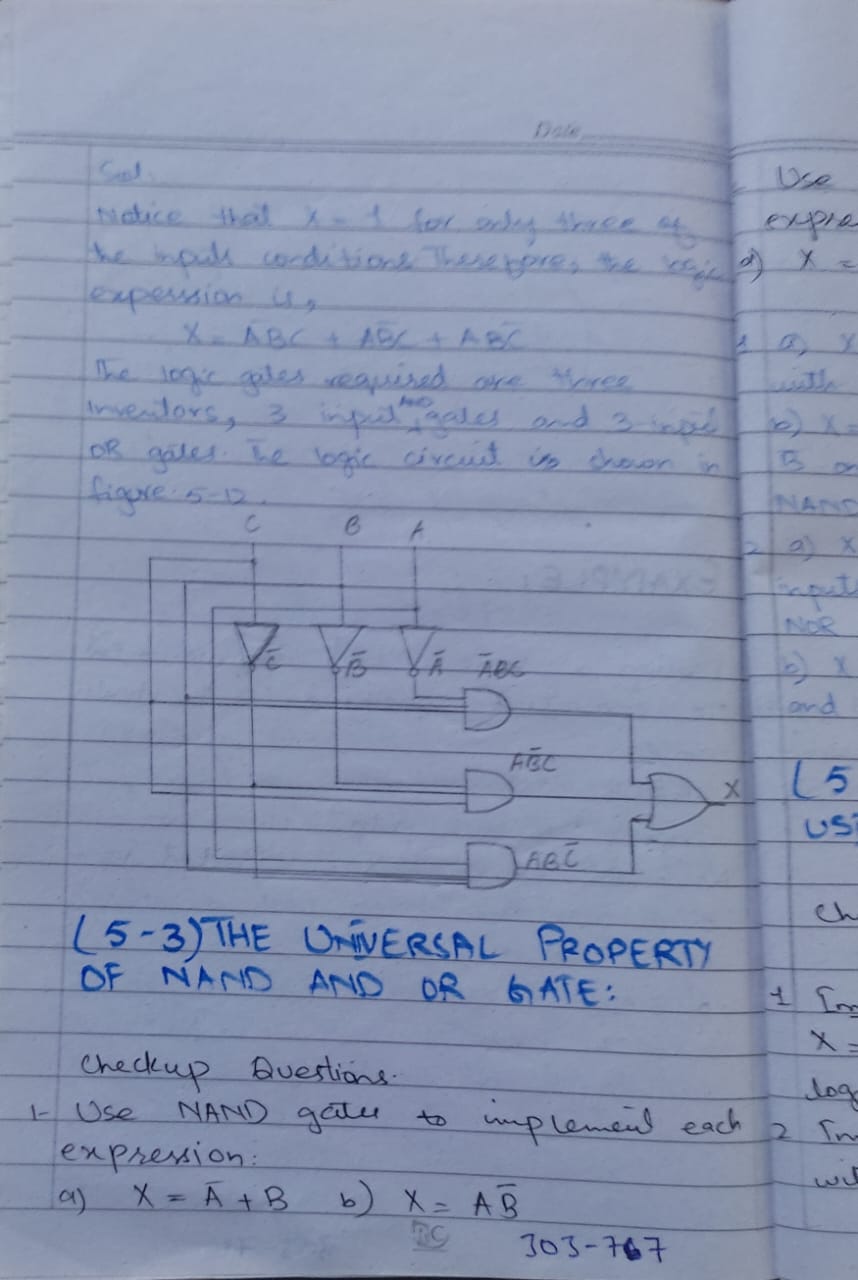 Date
Sol.
Notice that X = 1 for only three of
the inputs conditions Therefore, the logic
expession is,
X = A̅BC + AB̅C + ABC̅
The logic gates required are three
Inventors, 3 input AND gates and 3-input
OR gates. The logic circuit is shown in
figure 5-12.
C B A
C̅ B̅ A̅ A̅BC
AB̅C
X
ABC̅
(5-3) THE UNIVERSAL PROPERTY
OF NAND AND OR GATE:
Checkup Questions.
1- Use NAND gates to implement each
expression:
a) X = A̅ + B b) X = AB̅
303-767
Use
expre
a) X =
1 a) X
with
b) X =
B or
NAND
2 a) X
input
NOR
b) X
and
(5
USI
Ch
1 Im
X =
log
2 Im
wit